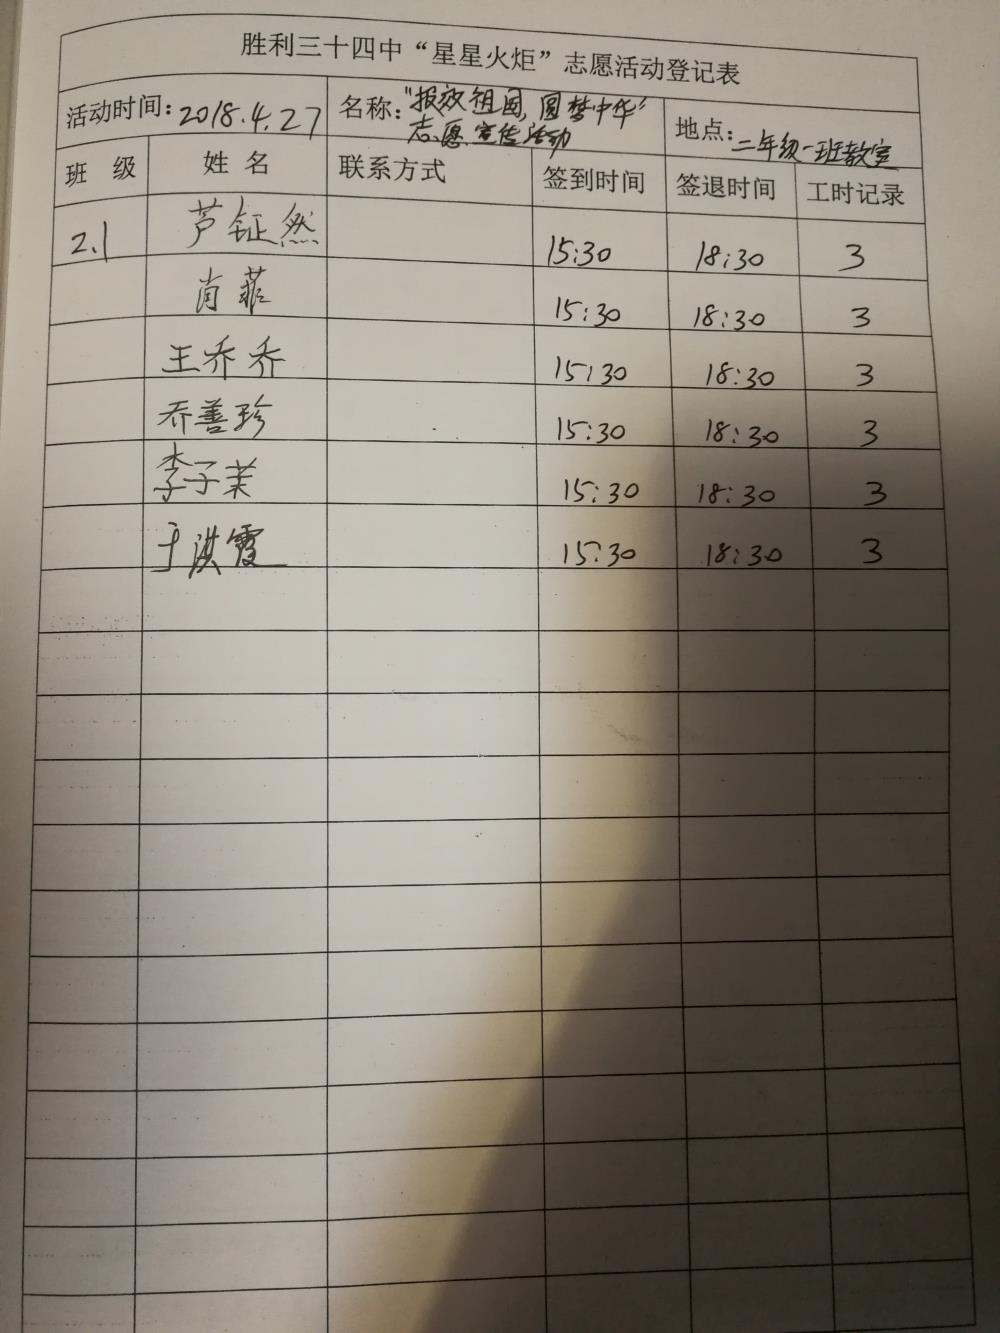 胜利三十四中“星星火炬”志愿活动登记表
活动时间：2018.4.27 名称：“报效祖国，圆梦中华”志愿宣传活动 地点：二年级一班教室
班 级 姓 名 联系方式 签到时间 签退时间 工时记录
2.1 芦钲然 15:30 18:30 3
肖菲 15:30 18:30 3
王乔乔 15:30 18:30 3
乔善珍 15:30 18:30 3
李子茉 15:30 18:30 3
于洪霞 15:30 18:30 3